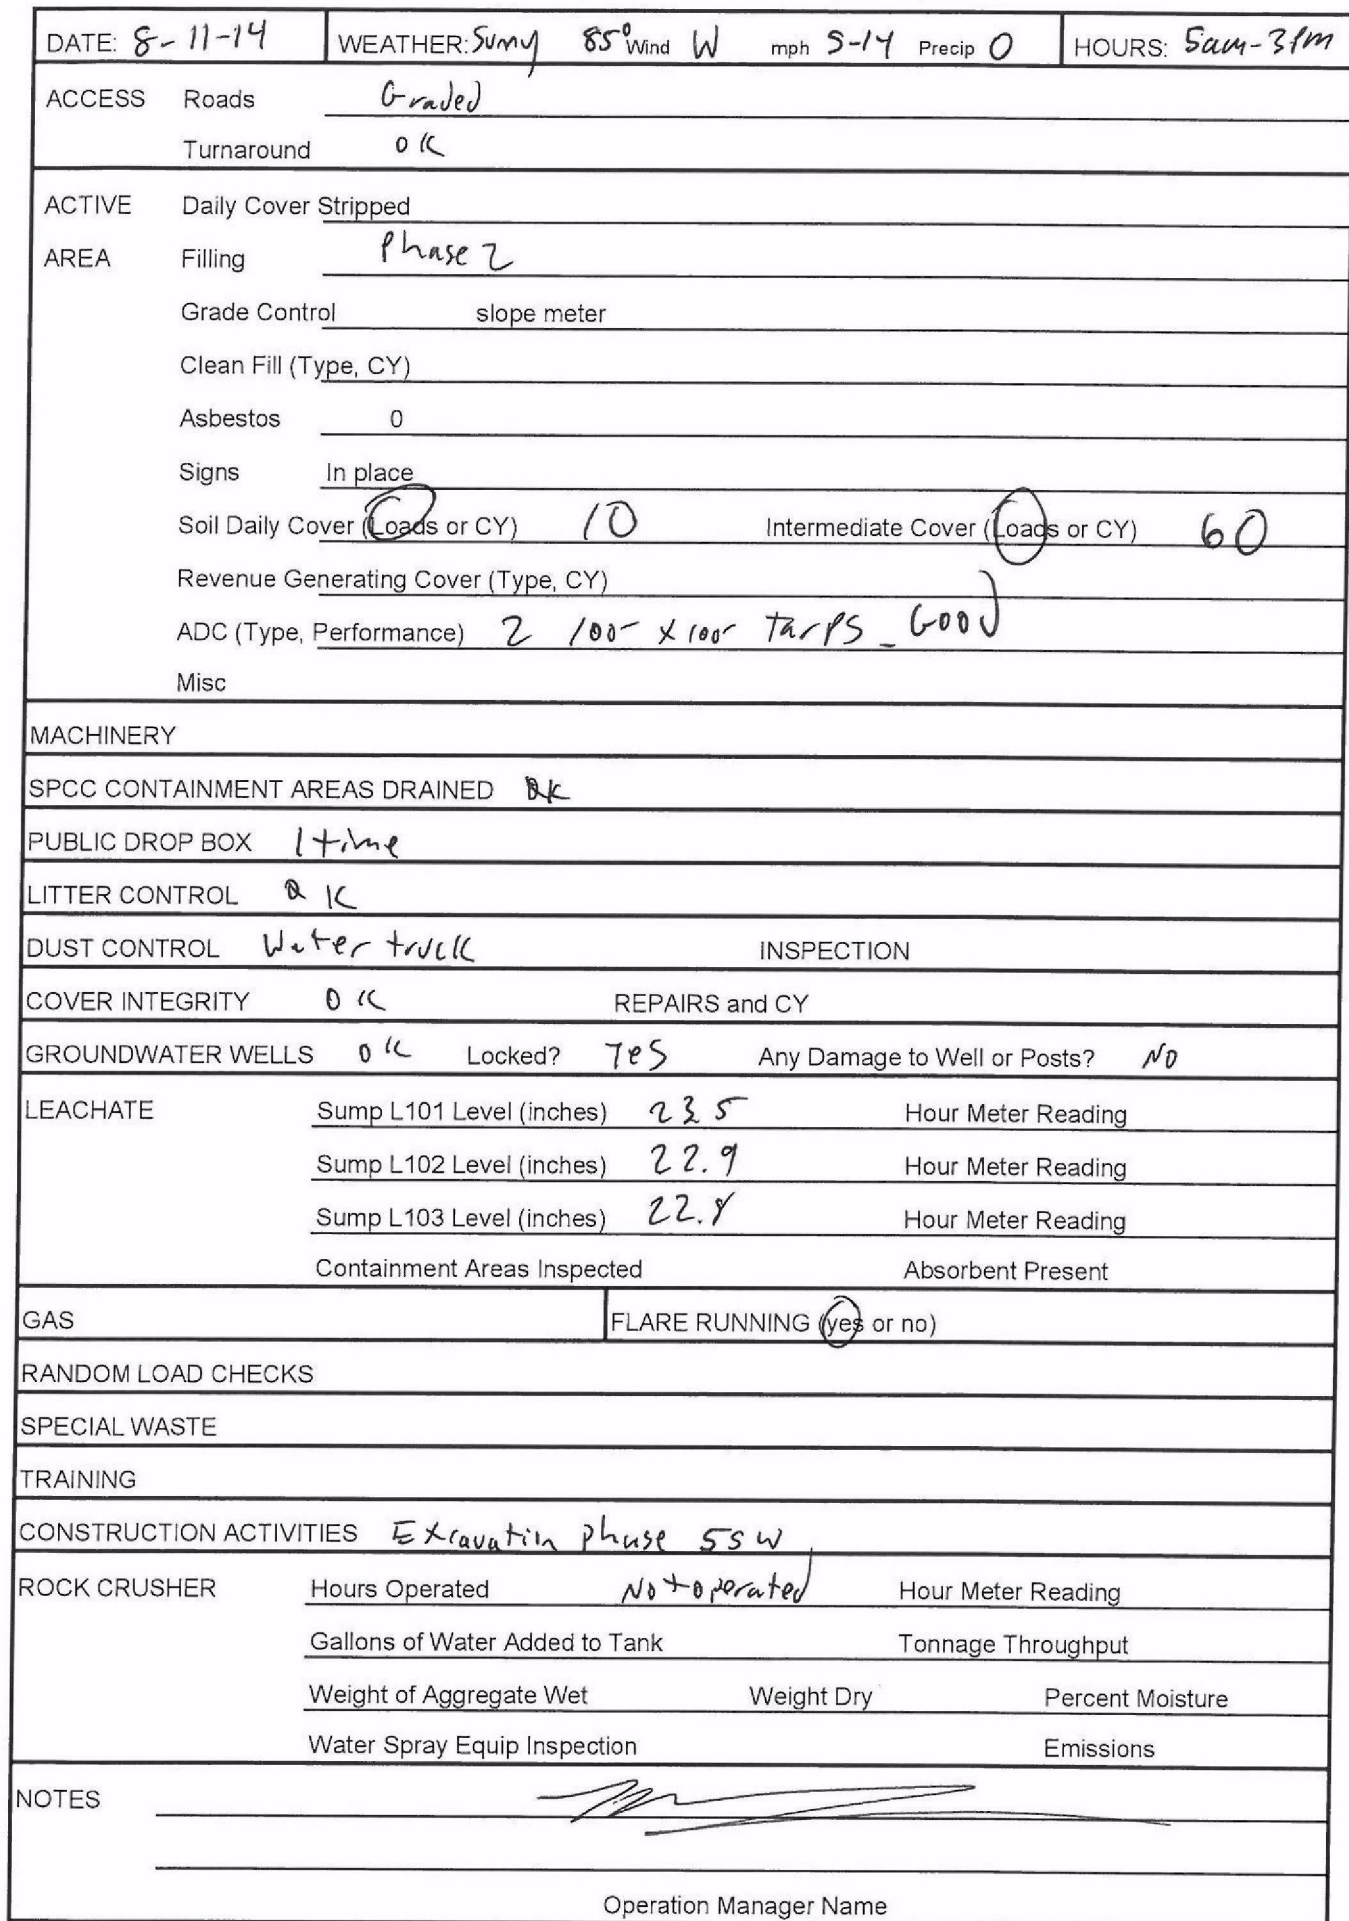 DATE: 8-11-14 WEATHER: Sunny 85° Wind W mph 5-14 Precip 0 HOURS: 5am-3pm
ACCESS Roads Graded
Turnaround OK
ACTIVE Daily Cover Stripped
AREA Filling Phase 2
Grade Control slope meter
Clean Fill (Type, CY)
Asbestos 0
Signs In place
Soil Daily Cover (Loads or CY) 10 Intermediate Cover (Loads or CY) 60
Revenue Generating Cover (Type, CY)
ADC (Type, Performance) 2 100- x 100- tarps - Good
Misc
MACHINERY
SPCC CONTAINMENT AREAS DRAINED OK
PUBLIC DROP BOX 1 time
LITTER CONTROL OK
DUST CONTROL Water truck INSPECTION
COVER INTEGRITY OK REPAIRS and CY
GROUNDWATER WELLS OK Locked? Yes Any Damage to Well or Posts? NO
LEACHATE Sump L101 Level (inches) 23.5 Hour Meter Reading
Sump L102 Level (inches) 22.9 Hour Meter Reading
Sump L103 Level (inches) 22.8 Hour Meter Reading
Containment Areas Inspected Absorbent Present
GAS FLARE RUNNING (yes or no)
RANDOM LOAD CHECKS
SPECIAL WASTE
TRAINING
CONSTRUCTION ACTIVITIES Excavatin phase 5SW
ROCK CRUSHER Hours Operated Not operated Hour Meter Reading
Gallons of Water Added to Tank Tonnage Throughput
Weight of Aggregate Wet Weight Dry Percent Moisture
Water Spray Equip Inspection Emissions
NOTES
Operation Manager Name